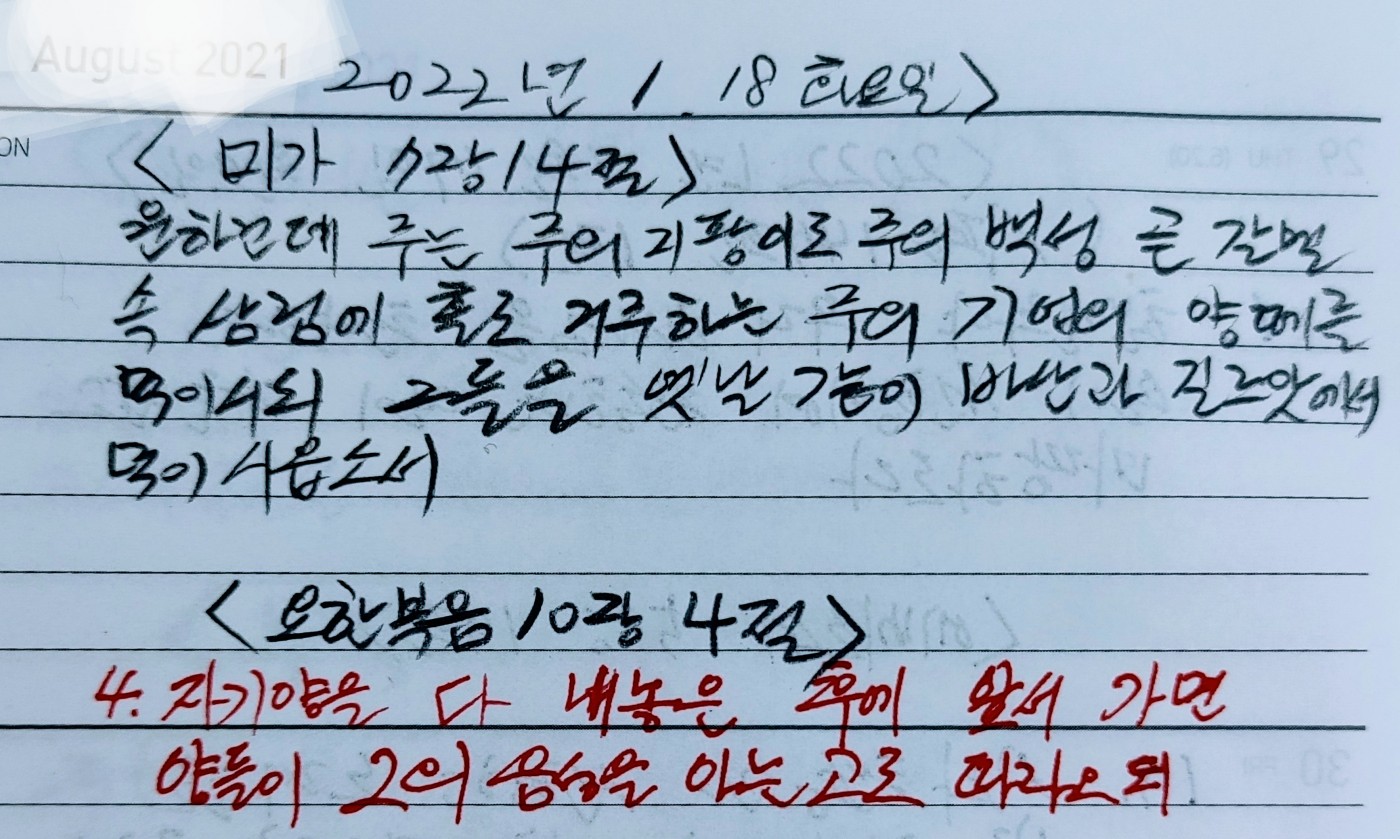 August 2021
2022년 1. 18 화요일>
ON
< 미가 7장 14절>
원하건데 주는 주의 지팡이로 주의 백성 곧 갈멜
속 삼림에 홀로 거주하는 주의 기업의 양떼를
먹이시되 그들을 옛날 같이 바산과 길르앗에서
먹이시옵소서
< 요한복음 10장 4절>
4. 자기양을 다 내놓은 후에 앞서 가면
양들이 그의 음성을 아는고로 따라오되